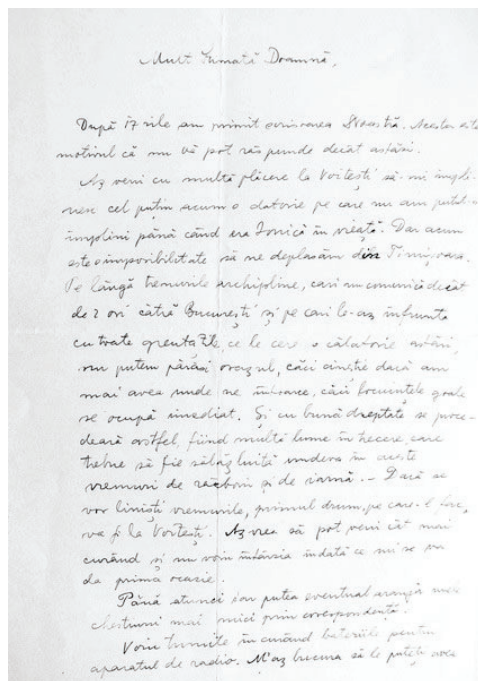 Mult Stimată Doamnă,
După 17 zile am primit scrisoarea Dvoastră. Acesta este
motivul că nu vă pot răspunde decât astăzi.
Aș veni cu multă plăcere la Voitești să-mi împli-
nesc cel puțin acum o datorie pe care nu am putut-o
împlini până când era Ionică în vieață. Dar acum
este o imposibilitate să ne deplasăm din Timișoara.
Pe lângă trenurile arhipline, cari nu comunică decât
de 2 ori către București și pe cari le-aș înfrunta
cu toate greutățile, ce le cere o călătorie astăzi,
nu putem părăsi orașul, căci cine știe dacă am
mai avea unde ne întoarce, căci locuințele goale
se ocupă imediat. Și cu bună dreptate se proce-
dează astfel, fiind multă lume în trecere, care
trebue să fie sălășluită undeva în aceste
vremuri de războiu și de iarnă. – Dacă se
vor liniști vremurile, primul drum, pe care-l fac,
va fi la Voitești. Aș vrea să pot veni cât mai
curând și nu voiu întârzia îndată ce mi se va
da prima ocazie.
Până atunci s'ar putea eventual aranja unele
chestiuni mai mici prin corespondență.
Voiu trimite în curând bateriile pentru
aparatul de radio. M'aș bucura să le puteți avea